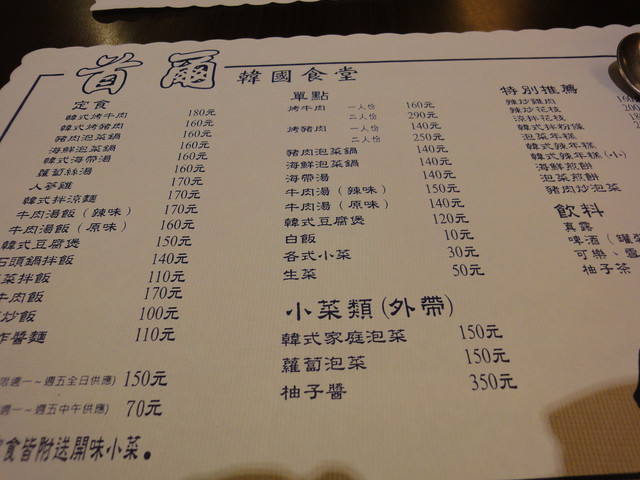 首爾 韓國食堂
定食
韓式烤牛肉 180元
韓式烤豬肉 160元
豬肉泡菜鍋 160元
海鮮泡菜鍋 160元
韓式海帶湯 160元
蘿蔔絲湯 160元
人蔘雞 170元
韓式拌涼麵 170元
牛肉湯飯（辣味） 170元
牛肉湯飯（原味） 160元
韓式豆腐煲 150元
石頭鍋拌飯 140元
菜拌飯 110元
牛肉飯 170元
炒飯 100元
炸醬麵 110元
週一～週五全日供應) 150元
週一～週五中午供應) 70元
食皆附送開味小菜。
單點
烤牛肉 一人份 160元
二人份 290元
烤豬肉 一人份 140元
二人份 250元
豬肉泡菜鍋 140元
海鮮泡菜鍋 140元
海帶湯 140元
牛肉湯（辣味） 150元
牛肉湯（原味） 140元
韓式豆腐煲 120元
白飯 10元
各式小菜 30元
生菜 50元
小菜類(外帶)
韓式家庭泡菜 150元
蘿蔔泡菜 150元
柚子醬 350元
特別推薦
辣炒雞肉
辣炒花枝
涼拌花枝
韓式拌粉條
泡菜年糕
韓式辣年糕
韓式辣年糕(小)
海鮮煎餅
泡菜煎餅
豬肉炒泡菜
飲料
真露
啤酒（罐
可樂、雪
柚子茶